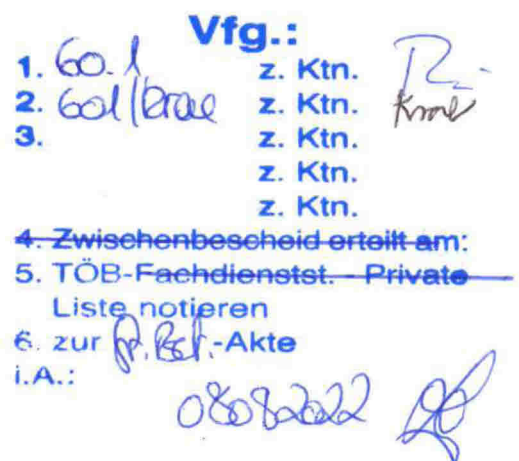 Vfg.:
1. 60.1 z. Ktn.
2. z. Ktn.
3. z. Ktn.
z. Ktn.
z. Ktn.
4. Zwischenbescheid erteilt am:
5. TÖB-Fachdienstst. - Private
Liste notieren
6. zur -Akte
i.A.:
08082022